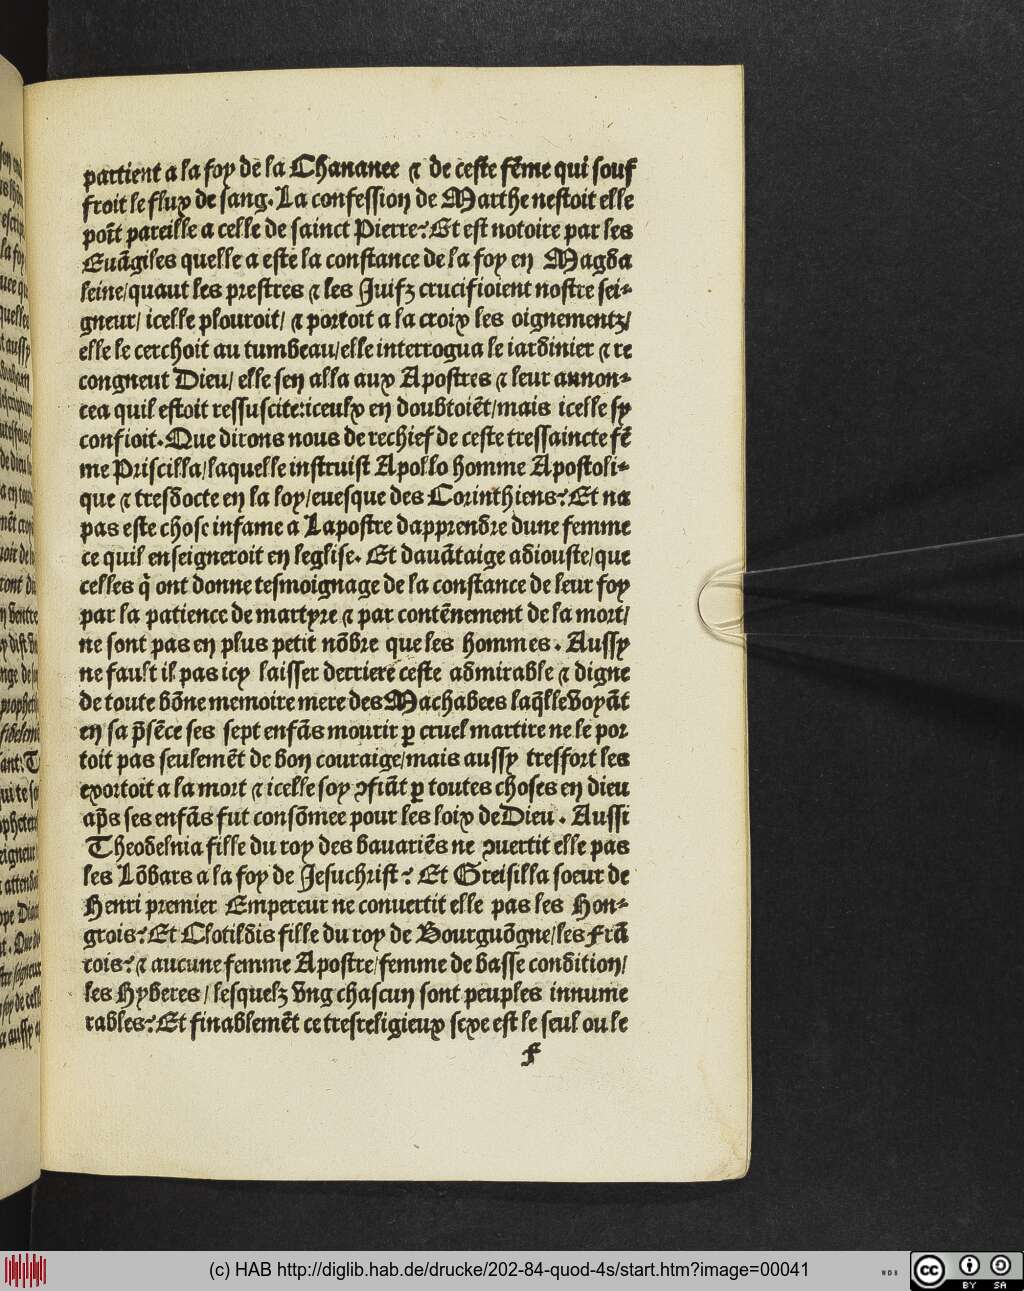 partient a la foy de la Chananee ⁊ de ceste fẽme qui souf
froit le flux de sang. La confession de Marthe nestoit elle
poĩt pareille a celle de sainct Pierre? Et est notoire par les
Euãgiles quelle a este la constance de la foy en Magda
leine/quaut les prestres ⁊ les Juifz crucifioient nostre sei-
gneur/ icelle plouroit/ ⁊ portoit a la croix les oignementz/
elle le cerchoit au tumbeau/elle interrogua le iardinier ⁊ re
congneut Dieu/ elle sen alla aux Apostres ⁊ leur annon-
cea quil estoit ressuscite: iceulx en doubtoiẽt/mais icelle sy
confioit. Que dirons nous de rechief de ceste tressaincte fẽ
me Priscilla/laquelle instruist Apollo homme Apostoli-
que ⁊ tresdocte en la loy/euesque des Corinthiens? Et na
pas este chose infame a Lapostre dapprendre dune femme
ce quil enseigneroit en leglise. Et dauãtaige adiouste/que
celles q̃ ont donne tesmoignage de la constance de leur foy
par la patience de martyre ⁊ par contẽnement de la mort/
ne sont pas en plus petit nõbre que les hommes. Aussy
ne fault il pas icy laisser derriere ceste admirable ⁊ digne
de toute bõne memoire mere des Machabees laq̃lle voyãt
en sa p̃sẽce ses sept enfãs mourir ꝑ cruel martire ne le por
toit pas seulemẽt de bon couraige/mais aussy tresfort les
exortoit a la mort ⁊ icelle soy ↄfiãt ꝑ toutes choses en dieu
ap̃s ses enfãs fut consõmee pour les loix de Dieu. Aussi
Theodelnia fille du roy des bauariẽs ne ↄuertit elle pas
les Lõbars a la foy de Jesuchrist? Et Greisilla soeur de
Henri premier Empereur ne conuertit elle pas les Hon-
grois? Et Clotildis fille du roy de Bourguõgne/les Frã
cois? ⁊ aucune femme Apostre/femme de basse condition/
les Hyberes/ lesquelz vng chascun sont peuples innume
rables? Et finablemẽt ce tresreligieux sexe est le seul ou le
f
(c) HAB http://diglib.hab.de/drucke/202-84-quod-4s/start.htm?image=00041
WDB
cc
BY SA